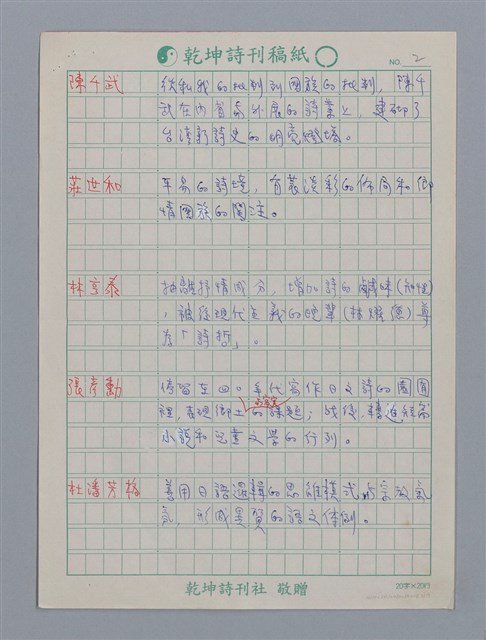 乾坤詩刊稿紙
NO. 2
陳千武 從私我的批判到國族的批判，陳千
武在內省與外展的詩業上，建砌了
台灣新詩史的明亮燈塔。
莊世和 平易的詩境，有著淡彩的佈局和鄉
情國族的關注。
林亨泰 抽離抒情成分，增加詩的鹹味（知性）
，被後現代主義的晚輩（林燿德）尊
為「詩哲」。
張彥勳 停留在四○年代寫作日文詩的園圃
裡，表現鄉土的寫實課題；戰後，轉進短篇
小說和兒童文學的行列。
杜潘芳格 善用日語邏輯的思維模式與宗教氣
氛，形成異質的語文体例。
乾坤詩刊社 敬贈
20字×20行